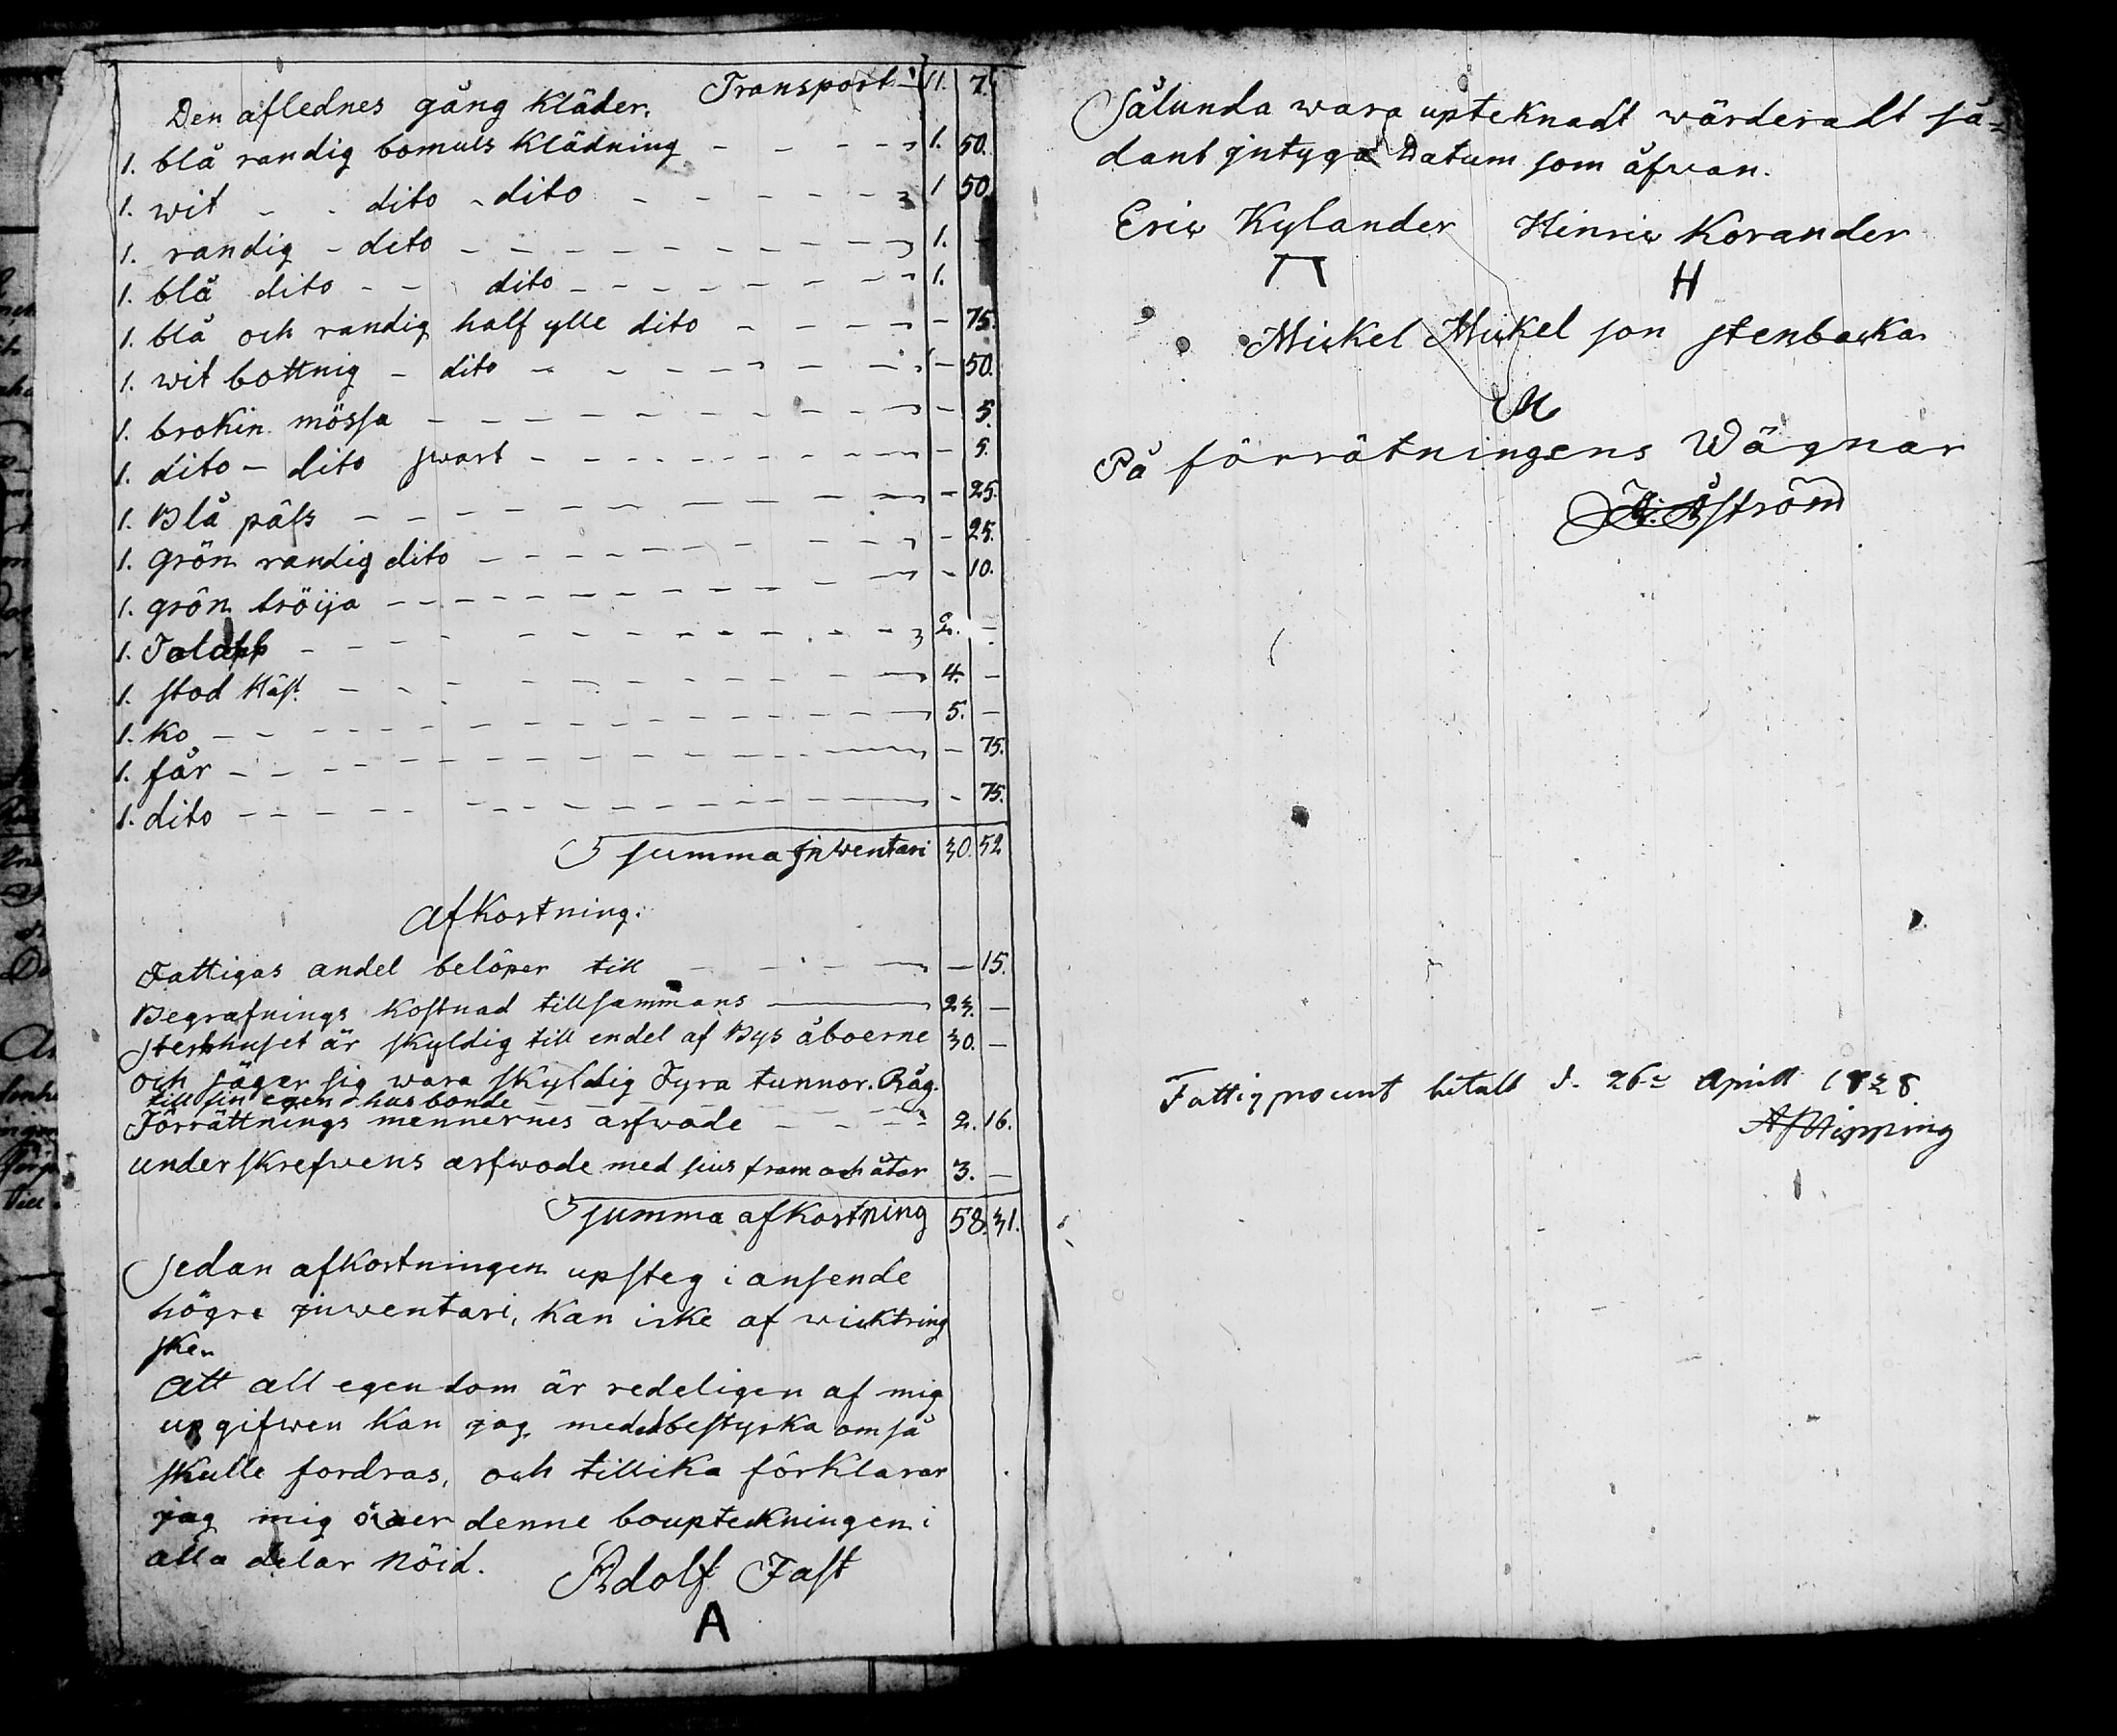 Transport 11. 7.
Den aflednes gång Kläder.
1. blå randig bomuls Klädning - - - - 1. 50.
1. wit - - dito - dito - - - - - - 1 50.
1. randig - dito - - - - - - - - - 1. -
1. blå dito - - dito - - - - - - - - 1.
1. blå och randig half ylle dito - - - - - 75.
1. wit bottnig - dito - - - - - - - - - 50.
1. brokin mössa - - - - - - - - - - - 5.
1. dito - dito swart - - - - - - - - - - 5.
1. Blå päls - - - - - - - - - - - - 25.
1. Grön randig dito - - - - - - - - - - 25.
1. grön tröija - - - - - - - - - - - - 10.
1. - - - - - - - - - - - - 2. -
1. stod Häst - - - - - - - - - - - 4. -
1. Ko - - - - - - - - - - - - - 5. -
1. får - - - - - - - - - - - - - - 75.
1. dito - - - - - - - - - - - - - - 75.
Summa jnwentari 30. 52
Afkostning.
Fattigas andel belöper till - - - - - 15.
Begrafnings Kostnad tillsammans 23. -
Sterbhuset är skyldig till endel af Bys åboerne 30. -
och säger sig wara skyldig Fyra tunnor. Råg.
till sin egen husbonde
Förrättnings mennernes arfwode - - - 2. 16.
underskrefvens arfwode med sius fram och åter 3. -
Summa afkostning 58. 31.
Sedan afkostningen upsteg i ansende
högre jnwentari, Kan icke af wicktring
ske.
Att all egendom är redeligen af mig
upgifwen Kan jag med ed bestyrka om så
skulle fordras, och tillika förklarar
jag mig öwer denne bouptekningen i
alla delar nöid.
Adolf Fast
A
Sålunda wara upteknadt wärderadt så=
dant jntyga Datum som åfwan.
Eric Kylander Hinric Korander
H
Mickel Mickel son Stenbacka
M
På förrätningens Wägnar
Åström
Fattigprocent betalt d. 26 April 1828.